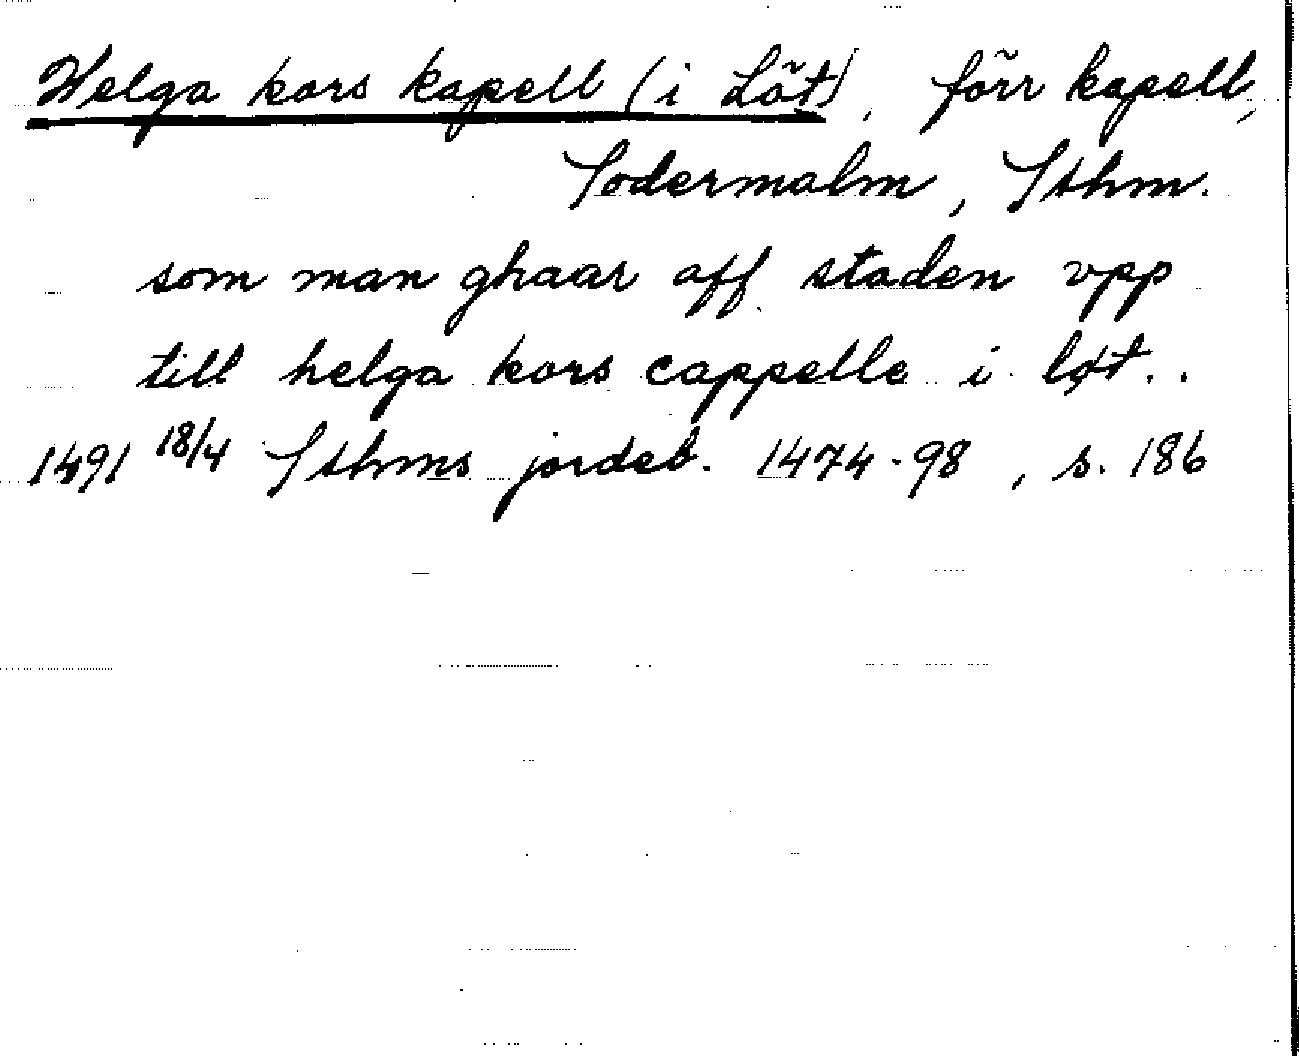 Helga kors kapell (i Löt), förr kapell,
Södermalm, Sthm.
som man ghaar aff staden vpp
till helga kors cappelle i løt..
1491 18/4 Sthms jordeb. 1474-98, s. 186